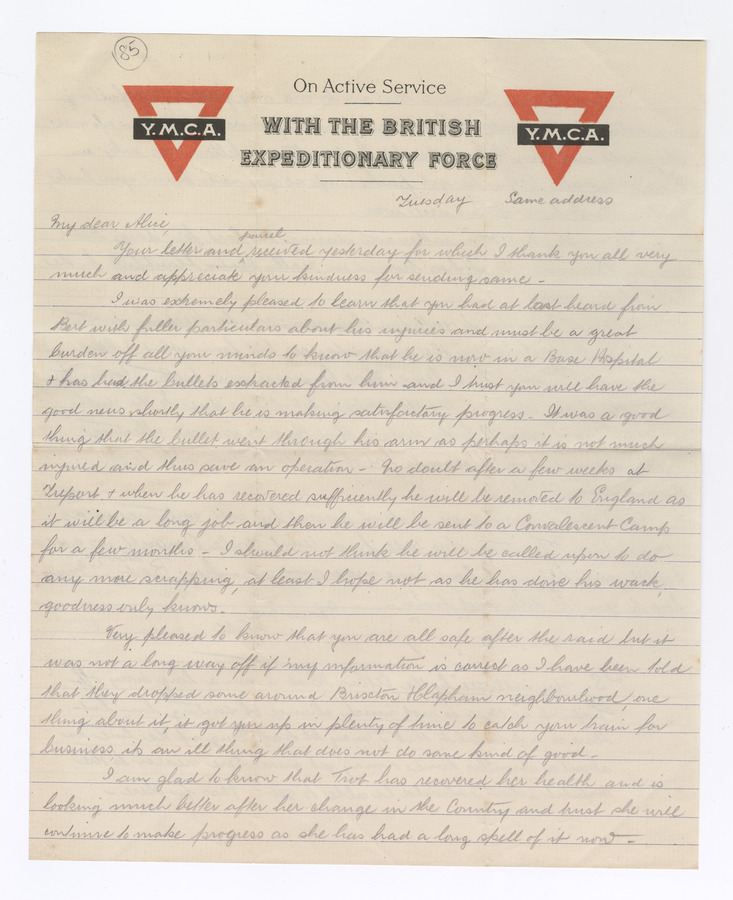 85
On Active Service
Y.M.C.A.
WITH THE BRITISH
EXPEDITIONARY FORCE
Y.M.C.A.
Tuesday Same address
My dear Alice,
parcel
Your letter and received yesterday for which I thank you all very
much and appreciate your kindness for sending same -
I was extremely pleased to learn that you had at last heard from
Bert with fuller particulars about his injuries and must be a great
burden off all your minds to know that he is now in a Base Hospital
+ has had the bullets extracted from him and I trust you will have the
good news shortly that he is making satisfactory progress - It was a good
thing that the bullet went through his arm as perhaps it is not much
injured and thus save an operation - No doubt after a few weeks at
Treport + when he has recovered sufficiently he will be removed to England as
it will be a long job and then he will be sent to a Convalescent Camp
for a few months - I should not think he will be called upon to do
any more scrapping, at least I hope not as he has done his wack,
goodness only knows.
Very pleased to know that you are all safe after the raid but it
was not a long way off if my information is correct as I have been told
that they dropped some around Brixton + Clapham neighbourhood, one
thing about it, it got you up in plenty of time to catch your train for
business its an ill thing that does not do some kind of good -
I am glad to know that Trot has recovered her health and is
looking much better after her change in the Country and trust she will
continue to make progress as she has had a long spell of it now -